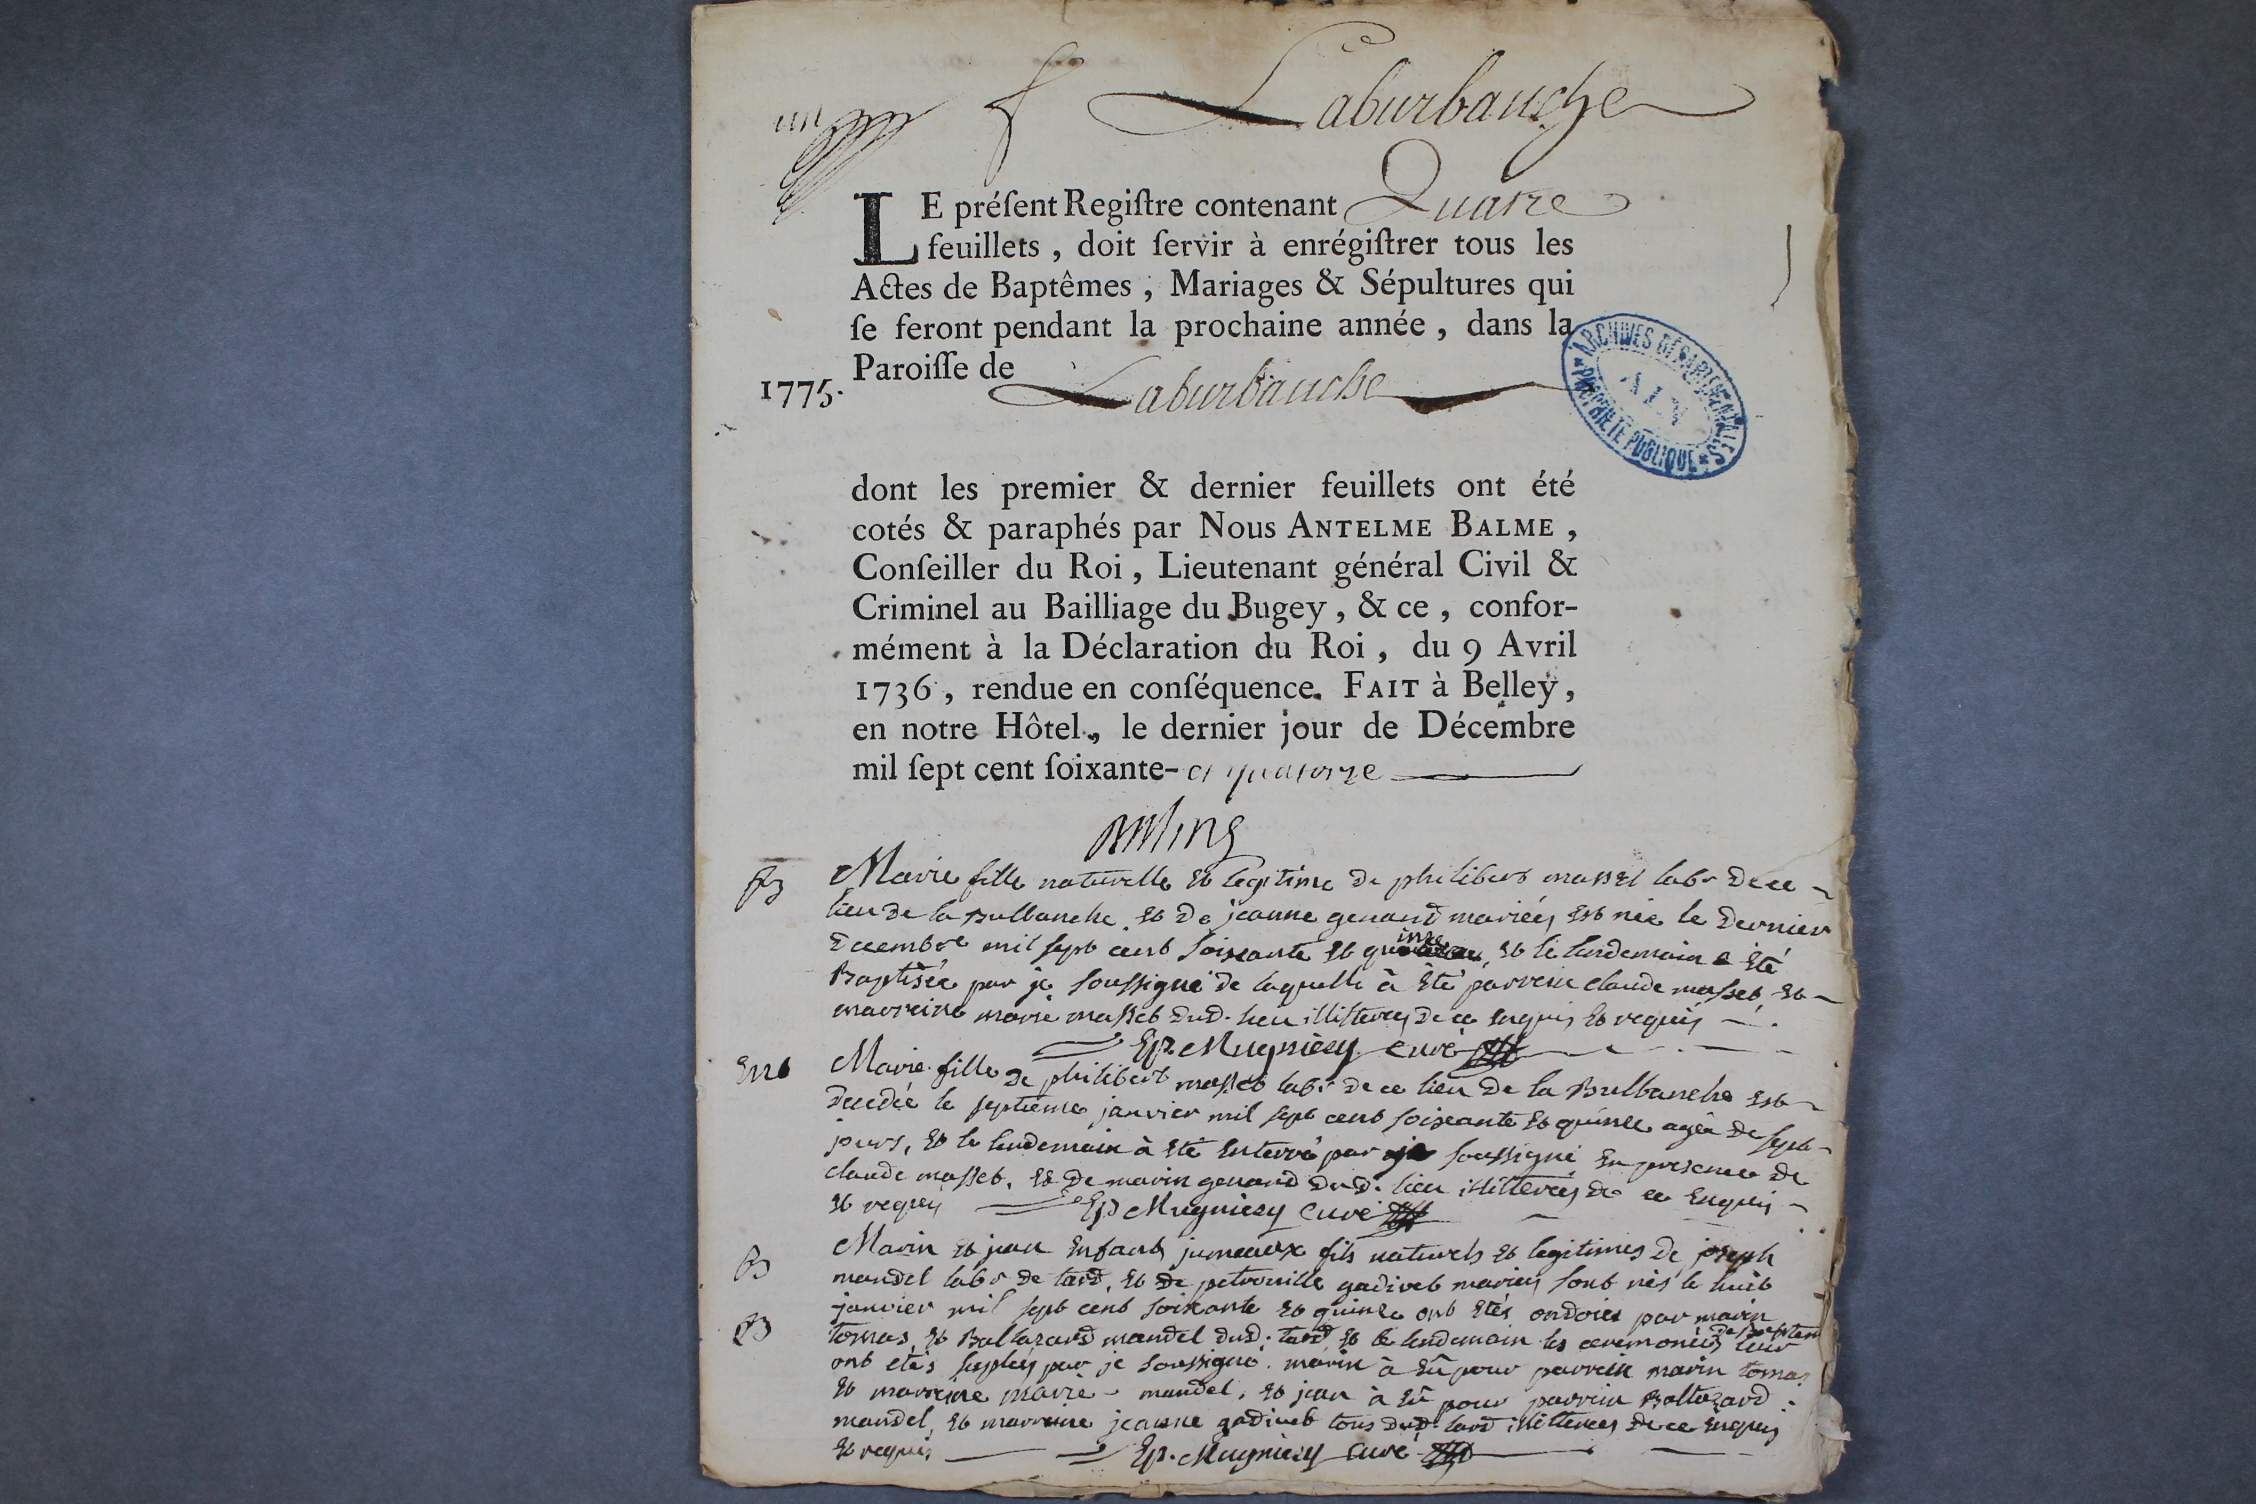 un
f Laburbanche
LE préſent Regiſtre contenant Quatre
feuillets, doit ſervir à enrégiſtrer tous les
Actes de Baptêmes, Mariages & Sépultures qui
ſe feront pendant la prochaine année, dans la
Paroiſſe de Laburbanche
1775.
ARCHIVES DÉPARTEMENTALES
AIN
PROPRIÉTÉ PUBLIQUE
dont les premier & dernier feuillets ont été
cotés & paraphés par Nous ANTELME BALME,
Conſeiller du Roi, Lieutenant général Civil &
Criminel au Bailliage du Bugey, & ce, confor-
mément à la Déclaration du Roi, du 9 Avril
1736, rendue en conſéquence. FAIT à Belley,
en notre Hôtel, le dernier jour de Décembre
mil ſept cent ſoixante-et quatorze
B
Marie fille naturelle et legitime de philibert masset labr de ce
lieu de la Bulbanche et de jeanne genand mariés est née le dernier
decembre mil sept cent soixante et quinze, et le lendemain a été
Baptisée par je soussigné de laquelle à été parrein claude masset, et
marreine marie masset dud. lieu illitterés de ce enquis et requis
Ep. Mugniery curé
Ent
Marie fille de philibert masset labr de ce lieu de la Bulbanche est
decedée le septieme janvier mil sept cent soixante et quinze agée de sept
jours, et le lendemain à été enterré par je soussigné en presence de
claude masset, et de marin genand dud. lieu illitterés de ce enquis
et requis Ep Mugniery curé
B
Marin et jean enfants jumeaux fils naturels et legitimes de joseph
mandel labr de tard, et de petronille gadivet mariés sont nés le huit
janvier mil sept cent soixante et quinze ont étés ondoiés par marin
B
tomas, et Baltazard mandel dud. tard et le lendemain les ceremonies de Baptem leur
ont etés supleés par je soussigné. marin à eû pour parrein marin tomas
et marreine marie mandel, et jean à eû pour parrein Baltazard
mandel, et marreine jeanne gadivet tous dud. tard illitterés de ce enquis
et requis Ep. Mugniery curé